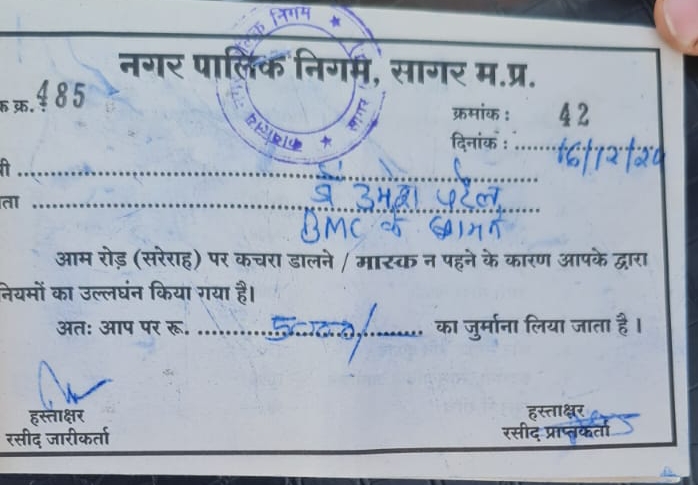 नगर पालिक निगम, सागर म.प्र.
क क्र. 485
क्रमांक : 42
दिनांक : 16/12/20
पी
डॉ उमेश पटेल
ता
BMC के सामने
आम रोड़ (सरेराह) पर कचरा डालने / मास्क न पहने के कारण आपके द्वारा
नियमों का उल्लघंन किया गया है।
अतः आप पर रू. 5000/ का जुर्माना लिया जाता है ।
हस्ताक्षर
रसीद जारीकर्ता
हस्ताक्षर
रसीद प्राप्तकर्ता